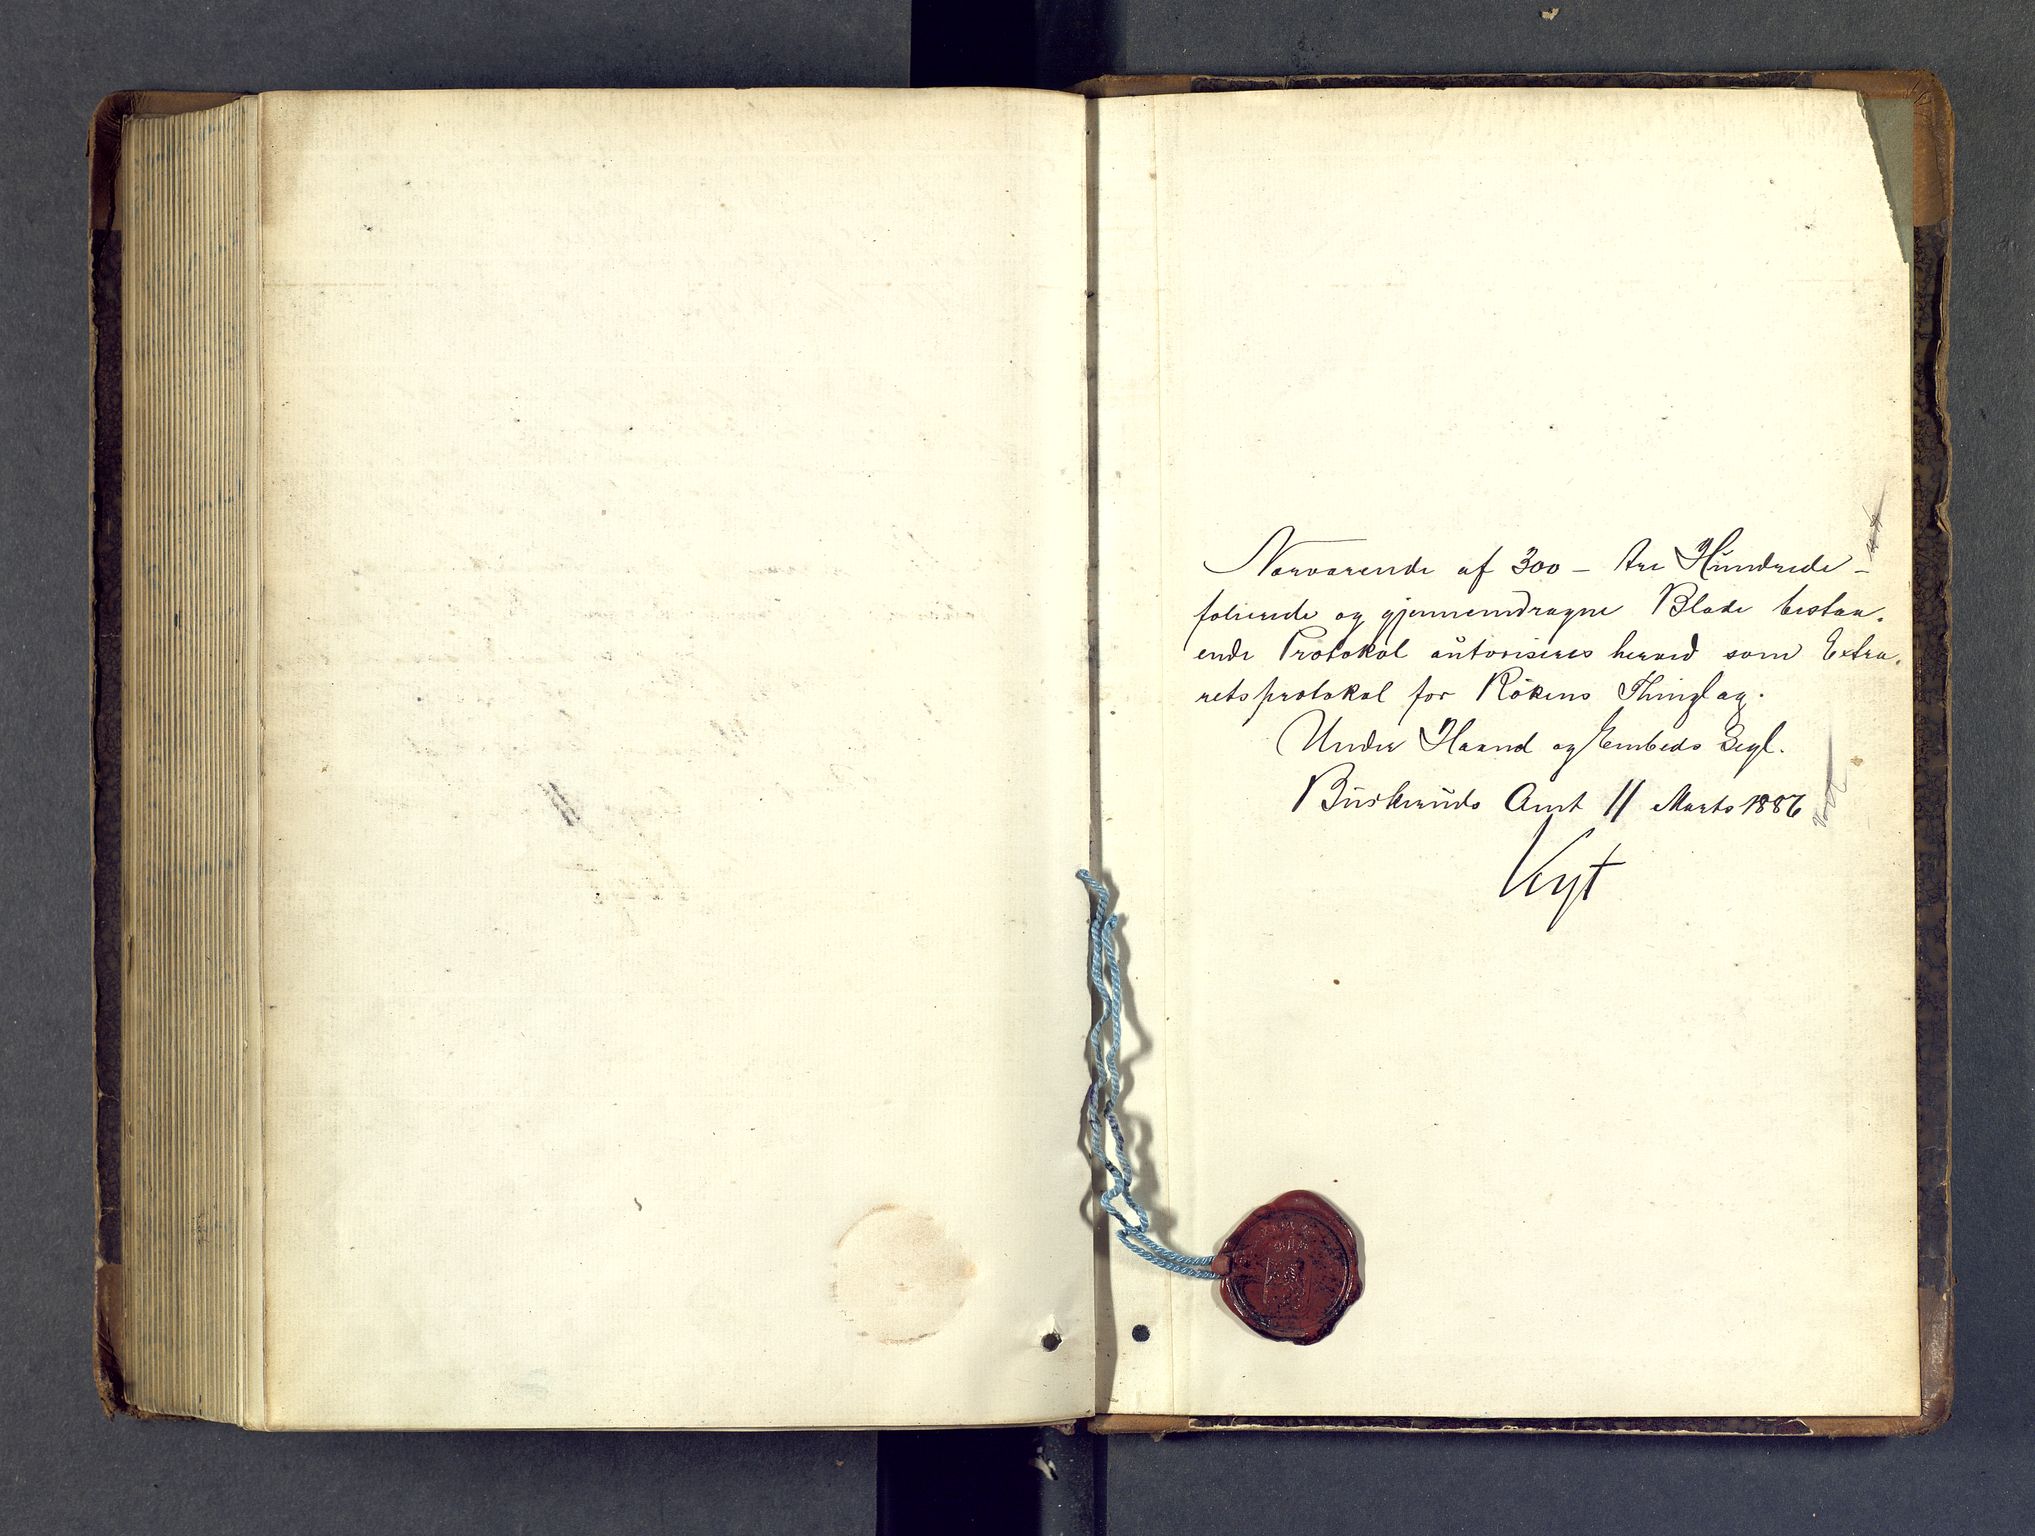 Nærværende af 300 – tre Hundrede –
folierede og gjennemdragne Blade bestaa-
ende Protokol autoriseres herved som Extra-
retsprotokol for Røkens Thinglag.
Under Haand og Embeds Segl.
Buskeruds Amt 11 Marts 1886